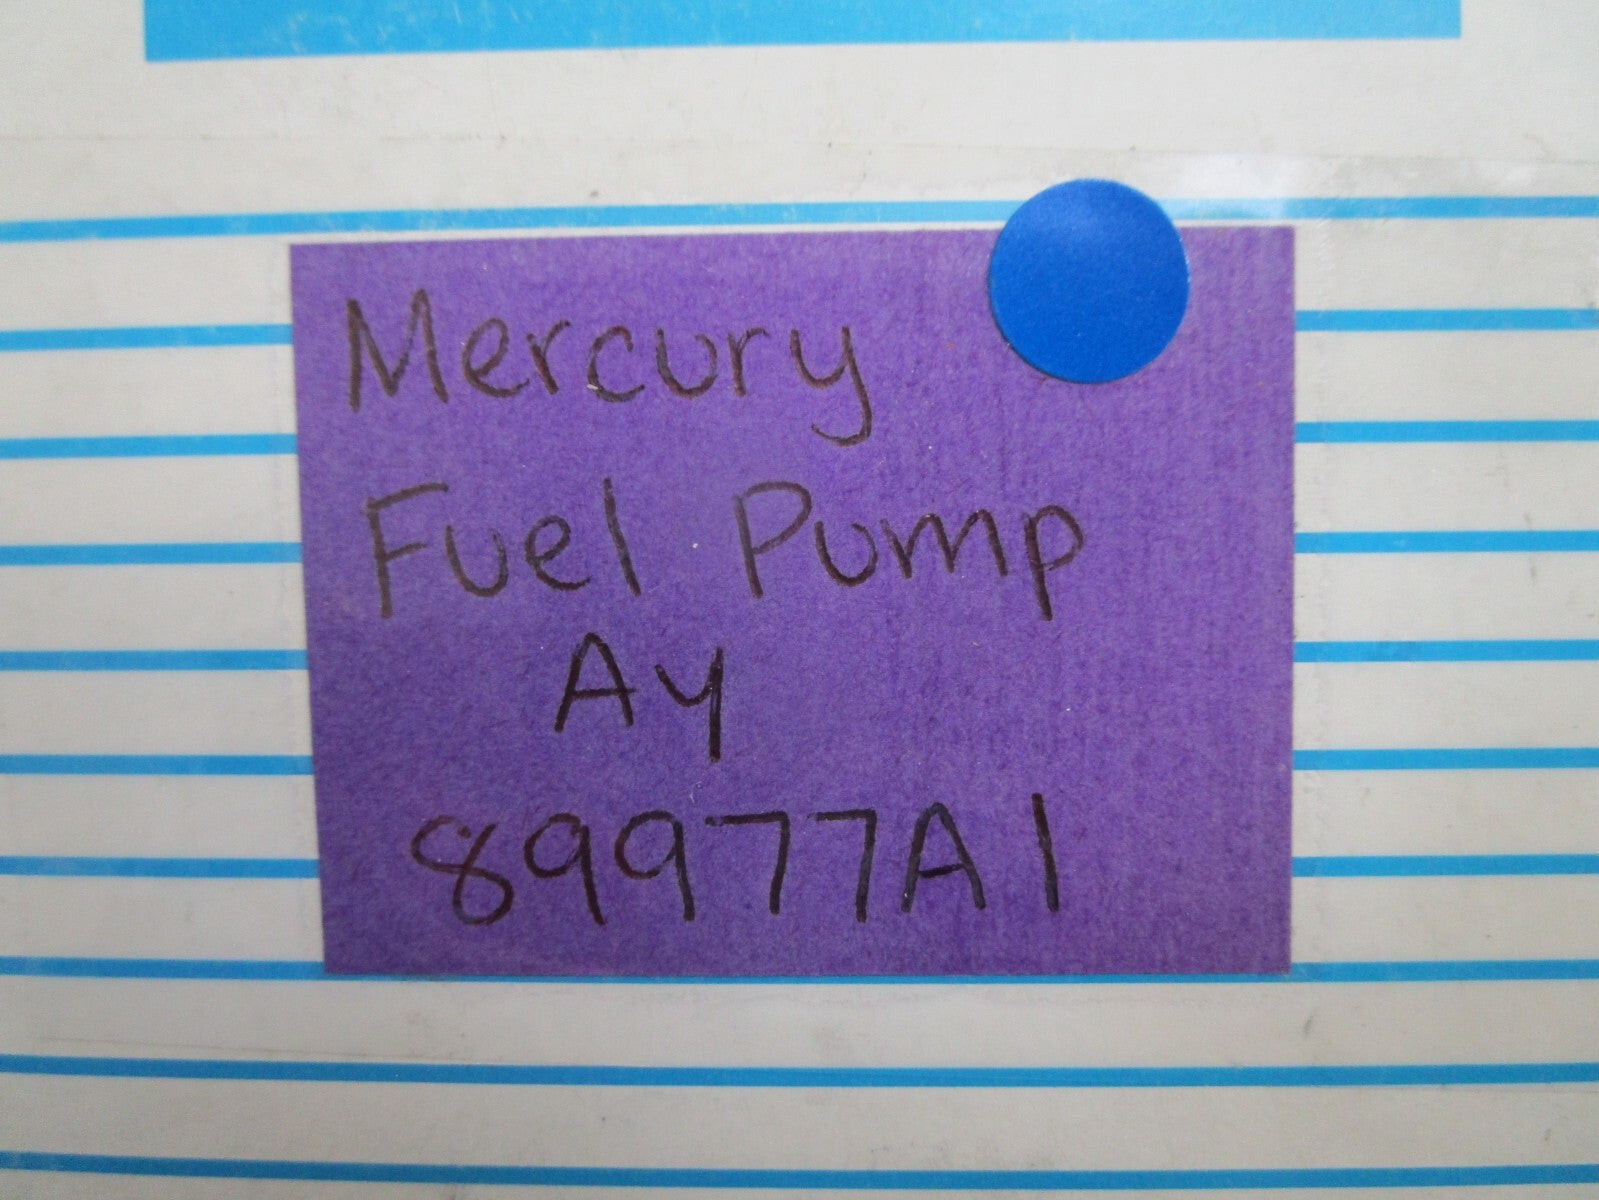 Mercury
Fuel Pump
Ay
89977A1